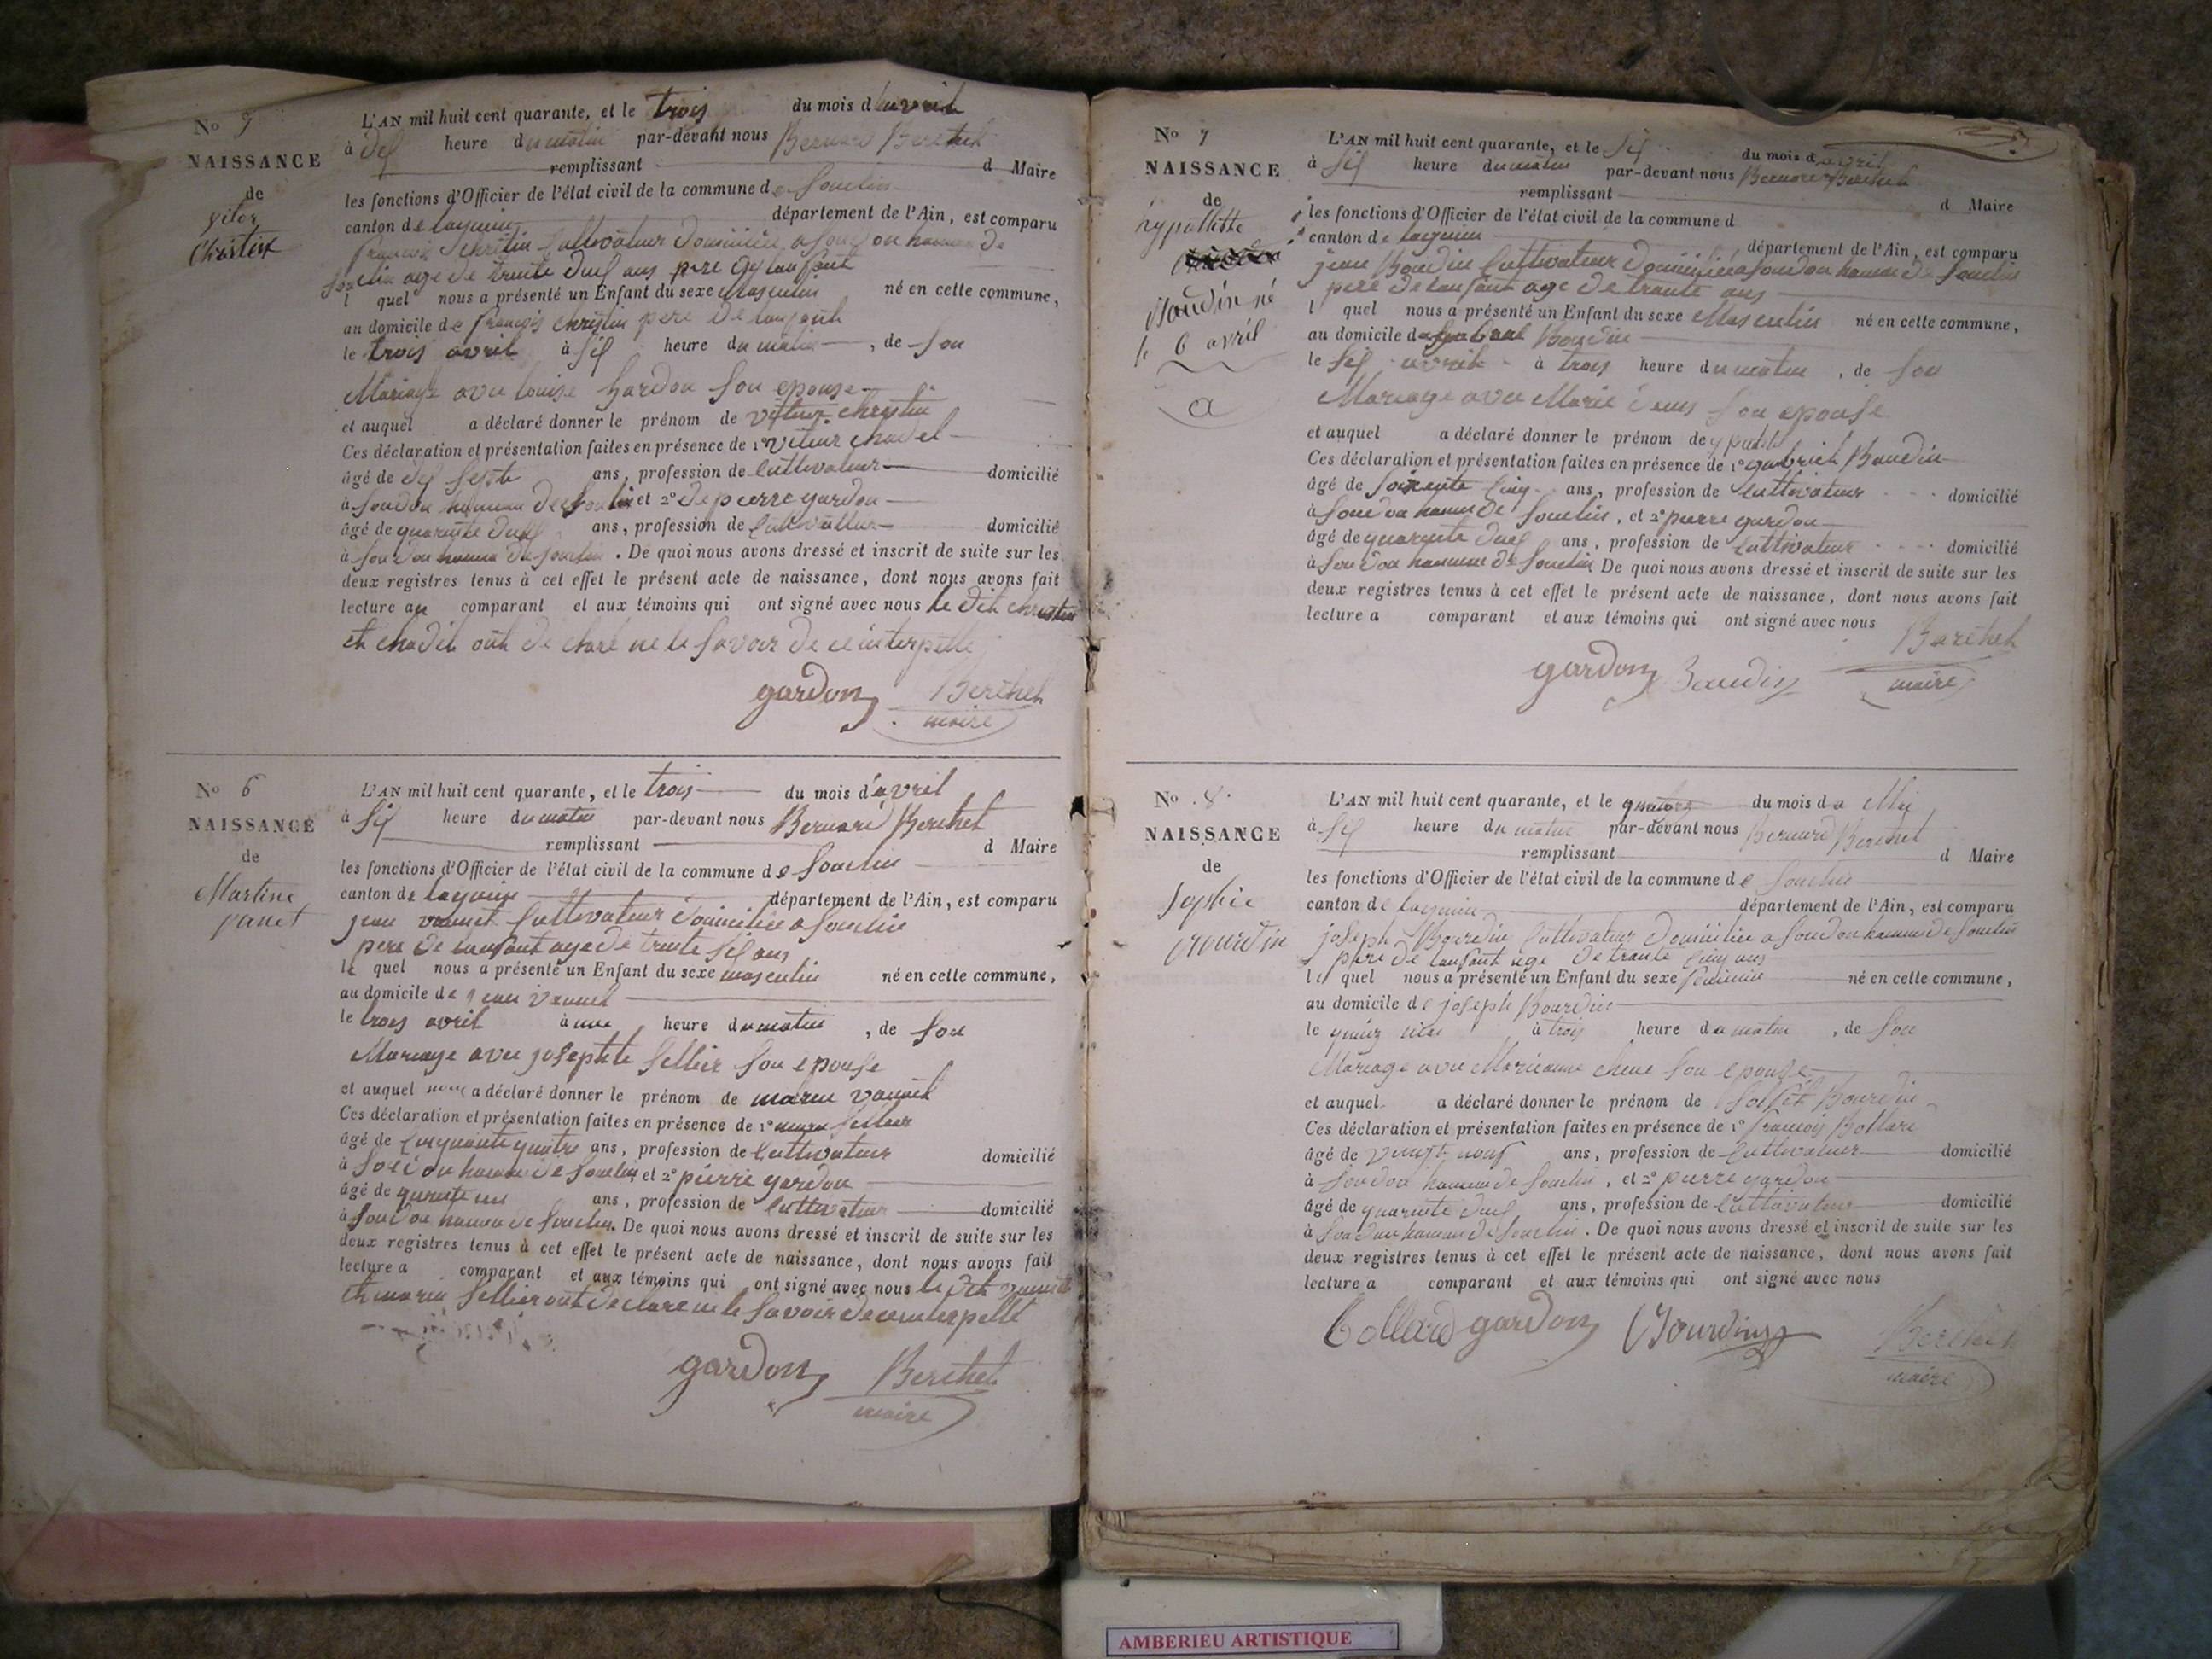 No 5
NAISSANCE
de
Vitor
Christin
L'AN mil huit cent quarante, et le trois du mois d'avril
à dix heure du matin par-devant nous Bernard Berthet
remplissant d Maire
les fonctions d'Officier de l'état civil de la commune de Souclin
canton de lagnieu département de l'Ain, est comparu
françois christin Cultivateur domicilié a Soudon hameau de
Souclin age de trente duex ans pere de lanfant
l quel nous a présenté un Enfant du sexe masculin né en cette commune,
au domicile de françois christin pere de lanfant
le trois avril à six heure du matin, de Son
Mariage avec louise gardon Son epouse
et auquel a déclaré donner le prénom de christin
Ces déclaration et présentation faites en présence de 1°
âgé de dix Sept ans, profession de Cultivateur domicilié
à Soudon hameau de Souclin et 2° de pierre gardon
âgé de quarente duex ans, profession de Cultivateur domicilié
à Soudon hameau de Souclin. De quoi nous avons dressé et inscrit de suite sur les
deux registres tenus à cet effet le présent acte de naissance, dont nous avons fait
lecture au comparant et aux témoins qui ont signé avec nous le dit christin
et chadel ont de claré ne le Savoir de ce interpellé
gardon Berthet
maire
No 6
NAISSANCE
de
Martine
vanet
L'AN mil huit cent quarante, et le trois du mois d'avril
à Six heure du matin par-devant nous Bernard Berthet
remplissant d Maire
les fonctions d'Officier de l'état civil de la commune de Souclin
canton de lagnieu département de l'Ain, est comparu
jean vannet Cultivateur domicilié a Souclin
pere de lanfant age de trente Six ans
le quel nous a présenté un Enfant du sexe masculin né en cette commune,
au domicile de jean vannet
le trois avril à une heure du matin, de Son
Mariage avec josephte Sellier Son epouse
et auquel a déclaré donner le prénom de vannet
Ces déclaration et présentation faites en présence de 1° Sellier
âgé de Cinquante quatre ans, profession de Cultivateur domicilié
à Soudon hameau de Souclin et 2° pierre gardon
âgé de quarente un ans, profession de Cultivateur domicilié
à Soudon hameau de Souclin. De quoi nous avons dressé et inscrit de suite sur les
deux registres tenus à cet effet le présent acte de naissance, dont nous avons fait
lecture a comparant et aux témoins qui ont signé avec nous le dit vannet
et Sellier ont déclaré ne le Savoir de ce interpellé
gardon Berthet
maire
No 7
NAISSANCE
de
hypollitte
Baudin né
le 6 avril
a
L'AN mil huit cent quarante, et le Six du mois d'avril
à Six heure du matin par-devant nous Bernard Berthet
remplissant d Maire
les fonctions d'Officier de l'état civil de la commune d
canton de lagnieu département de l'Ain, est comparu
jean Baudin Cultivateur domicilié a Soudon hameau de Souclin
pere de lanfant age de trante ans
l quel nous a présenté un Enfant du sexe Masculin né en cette commune,
au domicile de gabriel Baudin
le Six avril à trois heure du matin, de Son
Mariage avec Marie Son epouse
et auquel a déclaré donner le prénom de
Ces déclaration et présentation faites en présence de 1° gabriel Baudin
âgé de Soixente Cinq ans, profession de Cultivateur domicilié
à Soudon hameau de Souclin, et 2° pierre gardon
âgé de quarente duex ans, profession de Cultivateur domicilié
à Soudon hameau de Souclin De quoi nous avons dressé et inscrit de suite sur les
deux registres tenus à cet effet le présent acte de naissance, dont nous avons fait
lecture a comparant et aux témoins qui ont signé avec nous
Berthet
gardon Baudin maire
No 8
NAISSANCE
de
Sophie
Bourdin
L'AN mil huit cent quarante, et le du mois de Mai
à Six heure du matin par-devant nous Bernard Berthet
remplissant d Maire
les fonctions d'Officier de l'état civil de la commune de Souclin
canton de lagnieu département de l'Ain, est comparu
joseph Bourdin Cultivateur domicilié a Soudon hameau de Souclin
pere de lanfant age de trante Cinq ans
le quel nous a présenté un Enfant du sexe feminin né en cette commune,
au domicile de joseph Bourdin
le à trois heure du matin, de Son
Mariage avec Marieanne Son epouse
et auquel a déclaré donner le prénom de Bourdin
Ces déclaration et présentation faites en présence de 1° françois Bollard
âgé de vingt neuf ans, profession de Cultivateur domicilié
à Soudon hameau de Souclin, et 2° pierre gardon
âgé de quarente duex ans, profession de Cultivateur domicilié
à Soudon hameau de Souclin. De quoi nous avons dressé et inscrit de suite sur les
deux registres tenus à cet effet le présent acte de naissance, dont nous avons fait
lecture a comparant et aux témoins qui ont signé avec nous
Bollard gardon Bourdin Berthet
maire
AMBERIEU ARTISTIQUE